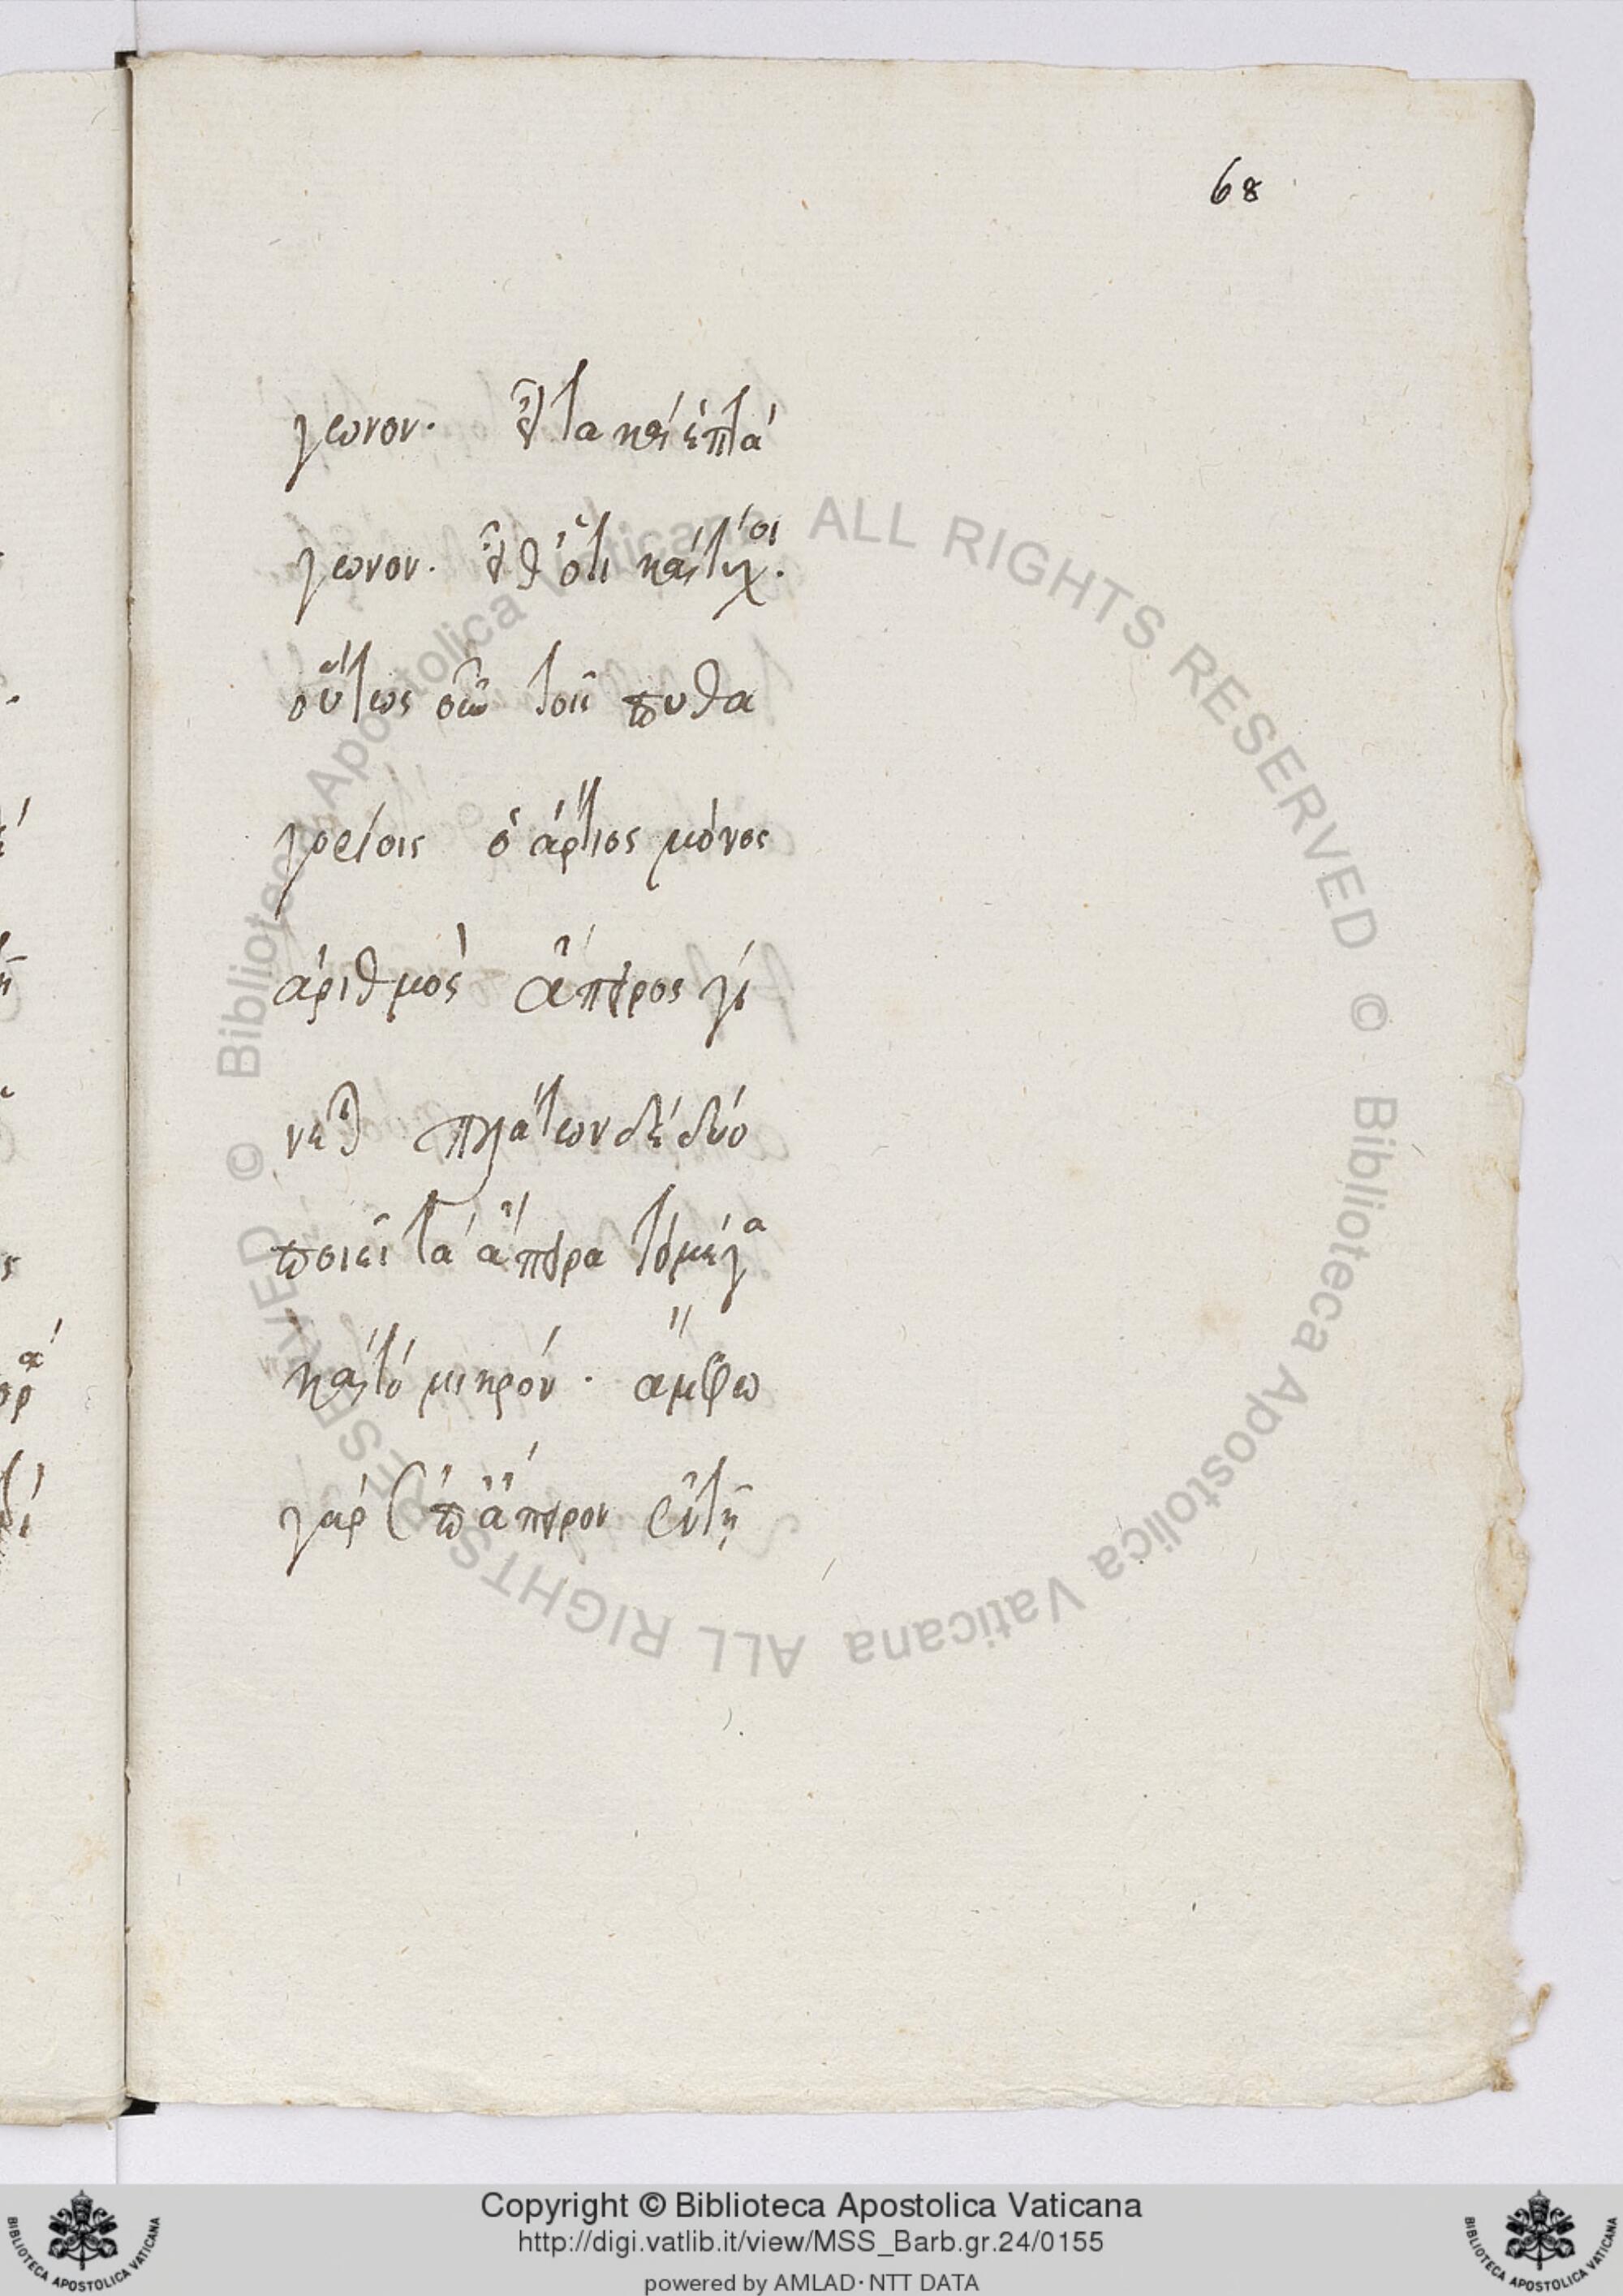 68
γωνον. εἶτα καὶ ἑπτά
γωνον. εἶθ ὅτι καὶ τύχοι.
οὕτως οὖν τοῖς πυθα
γορείοις ὁ ἄρτιος μόνος
ἀριθμὸς ἄπειρος γί
νεται πλάτων δὲ δύο
ποιεῖ τὰ ἄπειρα τὸ μέγα
καὶ τὸ μικρόν. ἄμφω
γὰρ ἐπ ἄπειρον ἐν τῇ
© Biblioteca Apostolica Vaticana ALL RIGHTS RESERVED © Biblioteca Apostolica Vaticana ALL RIGHTS RESERVED
Copyright © Biblioteca Apostolica Vaticana
http://digi.vatlib.it/view/MSS_Barb.gr.24/0155
powered by AMLAD·NTT DATA
BIBLIOTECA APOSTOLICA VATICANA
BIBLIOTECA APOSTOLICA VATICANA